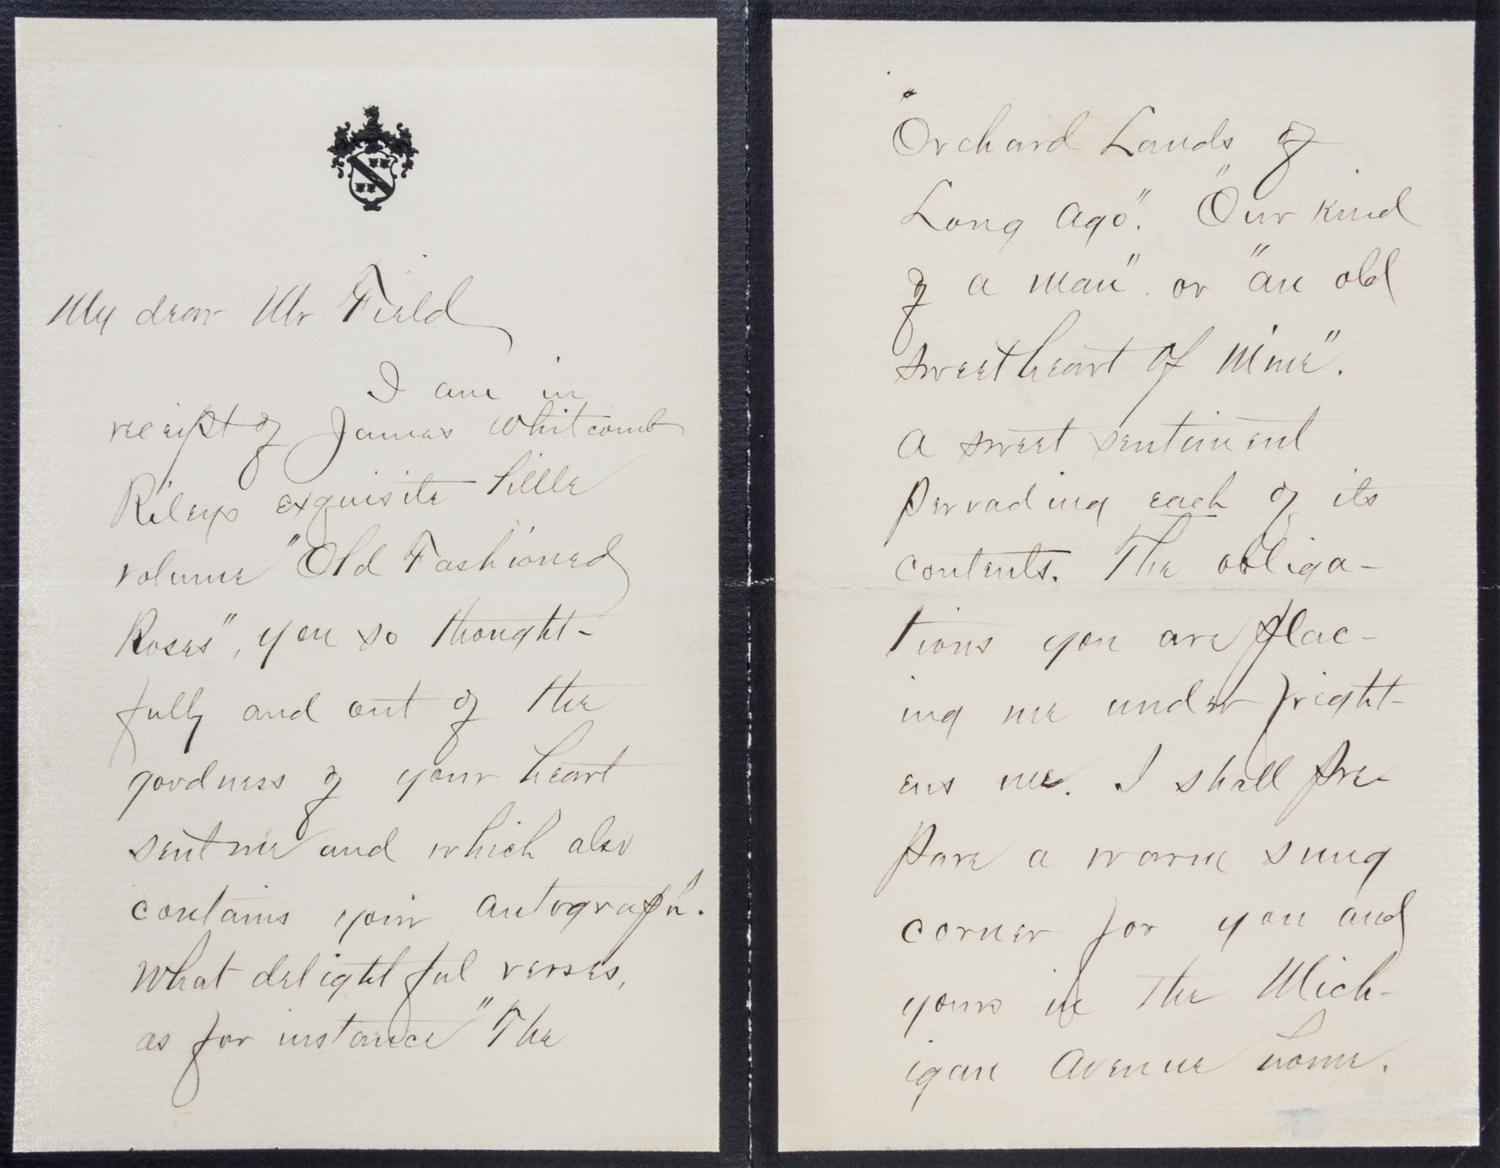 My dear Mr Field
I am in
reciept of James Whitcomb
Rileys exquisite little
volume "Old Fashioned
Roses", you so thought-
fully and out of the
goodness of your heart
sent me and which also
contains your autograph.
What delightful verses,
as for instance "The
"Orchard Lands of
Long Ago". "Our Kind
of a Man" or "an old
sweetheart of Mine".
A sweet sentiment
pervading each of its
contents. The obliga-
tions you are plac-
ing me under fright-
ens me. I shall pre-
pare a warm snug
corner for you and
yours in the Mich-
igan Avenue home.